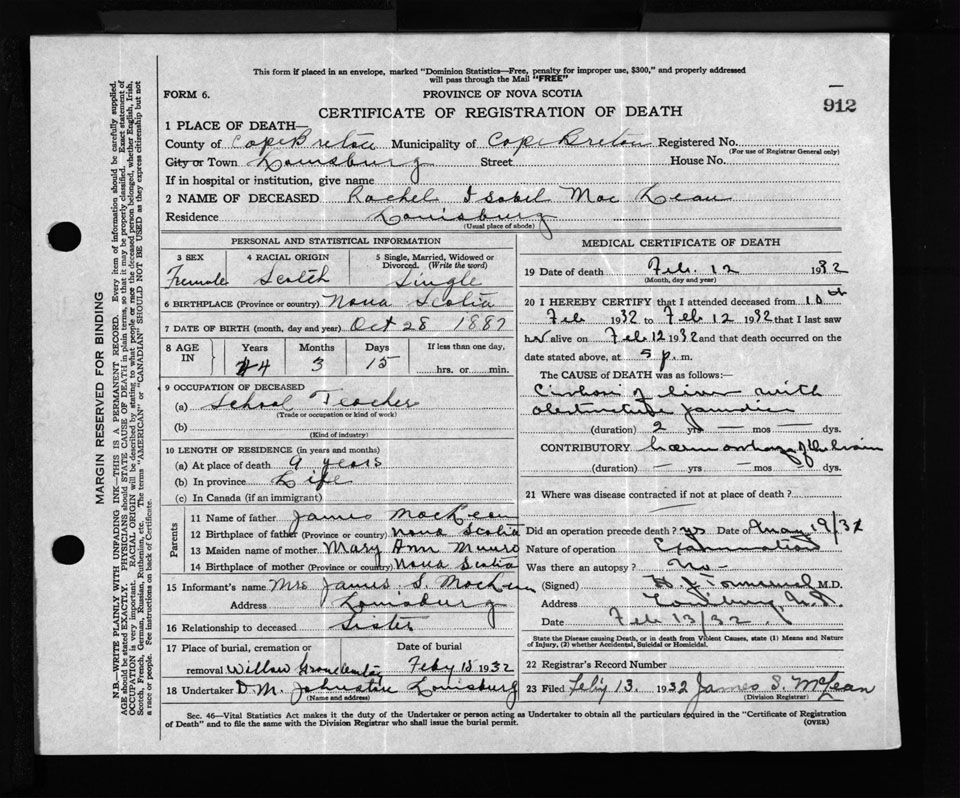 This form if placed in an envelope, marked "Dominion Statistics—Free, penalty for improper use, $300," and properly addressed
will pass through the Mail "FREE"
FORM 6. PROVINCE OF NOVA SCOTIA 912
CERTIFICATE OF REGISTRATION OF DEATH
1 PLACE OF DEATH—
County of Cape Breton Municipality of Cape Breton Registered No.
(For use of Registrar General only)
City or Town Louisburg Street House No.
If in hospital or institution, give name
2 NAME OF DECEASED Rachel Isobel Mac Lean
Residence Louisburg
(Usual place of abode)
PERSONAL AND STATISTICAL INFORMATION
3 SEX 4 RACIAL ORIGIN 5 Single, Married, Widowed or
Divorced. (Write the word)
Female Scotch Single
6 BIRTHPLACE (Province or country) Nova Scotia
7 DATE OF BIRTH (month, day and year) Oct 28 1887
8 AGE IN Years Months Days If less than one day,
44 3 15 hrs. or min.
9 OCCUPATION OF DECEASED
(a) School Teacher
(Trade or occupation or kind of work)
(b)
(Kind of industry)
10 LENGTH OF RESIDENCE (in years and months)
(a) At place of death 9 years
(b) In province Life
(c) In Canada (if an immigrant)
Parents
11 Name of father James MacLean
12 Birthplace of father (Province or country) Nova Scotia
13 Maiden name of mother Mary Ann Munro
14 Birthplace of mother (Province or country) Nova Scotia
15 Informant's name Mrs James S. MacLean
Address Louisburg
16 Relationship to deceased Sister
17 Place of burial, cremation or Date of burial
removal Willow Feby 15 1932
18 Undertaker D.M. Johnstone Louisburg
(Name and address)
MEDICAL CERTIFICATE OF DEATH
19 Date of death Feb. 12 1932
(Month, day and year)
20 I HEREBY CERTIFY that I attended deceased from 10th
Feb 1932 to Feb 12 1932 that I last saw
h alive on Feb 12 1932 and that death occurred on the
date stated above, at 5 p. m.
The CAUSE OF DEATH was as follows:
Cirrhosis of liver with
obstructive jaundice
(duration) 2 yrs — mos — dys.
CONTRIBUTORY haemorrhage of the brain
(duration) — yrs — mos dys.
21 Where was disease contracted if not at place of death?
—
Did an operation precede death? yes Date of May 19/31
Nature of operation Examination
Was there an autopsy? No
(Signed) M.D.
Address Louisburg N.S.
Date Feb 13/32
State the Disease causing Death, or in death from Violent Causes, state (1) Means and Nature
of Injury, (2) whether Accidental, Suicidal or Homicidal.
22 Registrar's Record Number
23 Filed Feby 13. 1932 James S. McLean
(Division Registrar)
Sec. 46—Vital Statistics Act makes it the duty of the Undertaker or person acting as Undertaker to obtain all the particulars required in the "Certificate of Registration
of Death" and to file the same with the Division Registrar who shall issue the burial permit. (OVER)
MARGIN RESERVED FOR BINDING
N.B.—WRITE PLAINLY WITH UNFADING INK—THIS IS A PERMANENT RECORD. Every item of information should be carefully supplied.
AGE should be stated EXACTLY. PHYSICIANS should STATE CAUSE OF DEATH in plain terms, so that it may be properly classified. Exact statement of
OCCUPATION is very important. RACIAL ORIGIN will be described by stating to what people or race the deceased person belonged, whether English, Irish,
Scotch, French, German, Russian, Ruthenian, etc. The terms "AMERICAN" or "CANADIAN" SHOULD NOT BE USED as they express citizenship but not
a race or people. See instructions on back of Certificate.